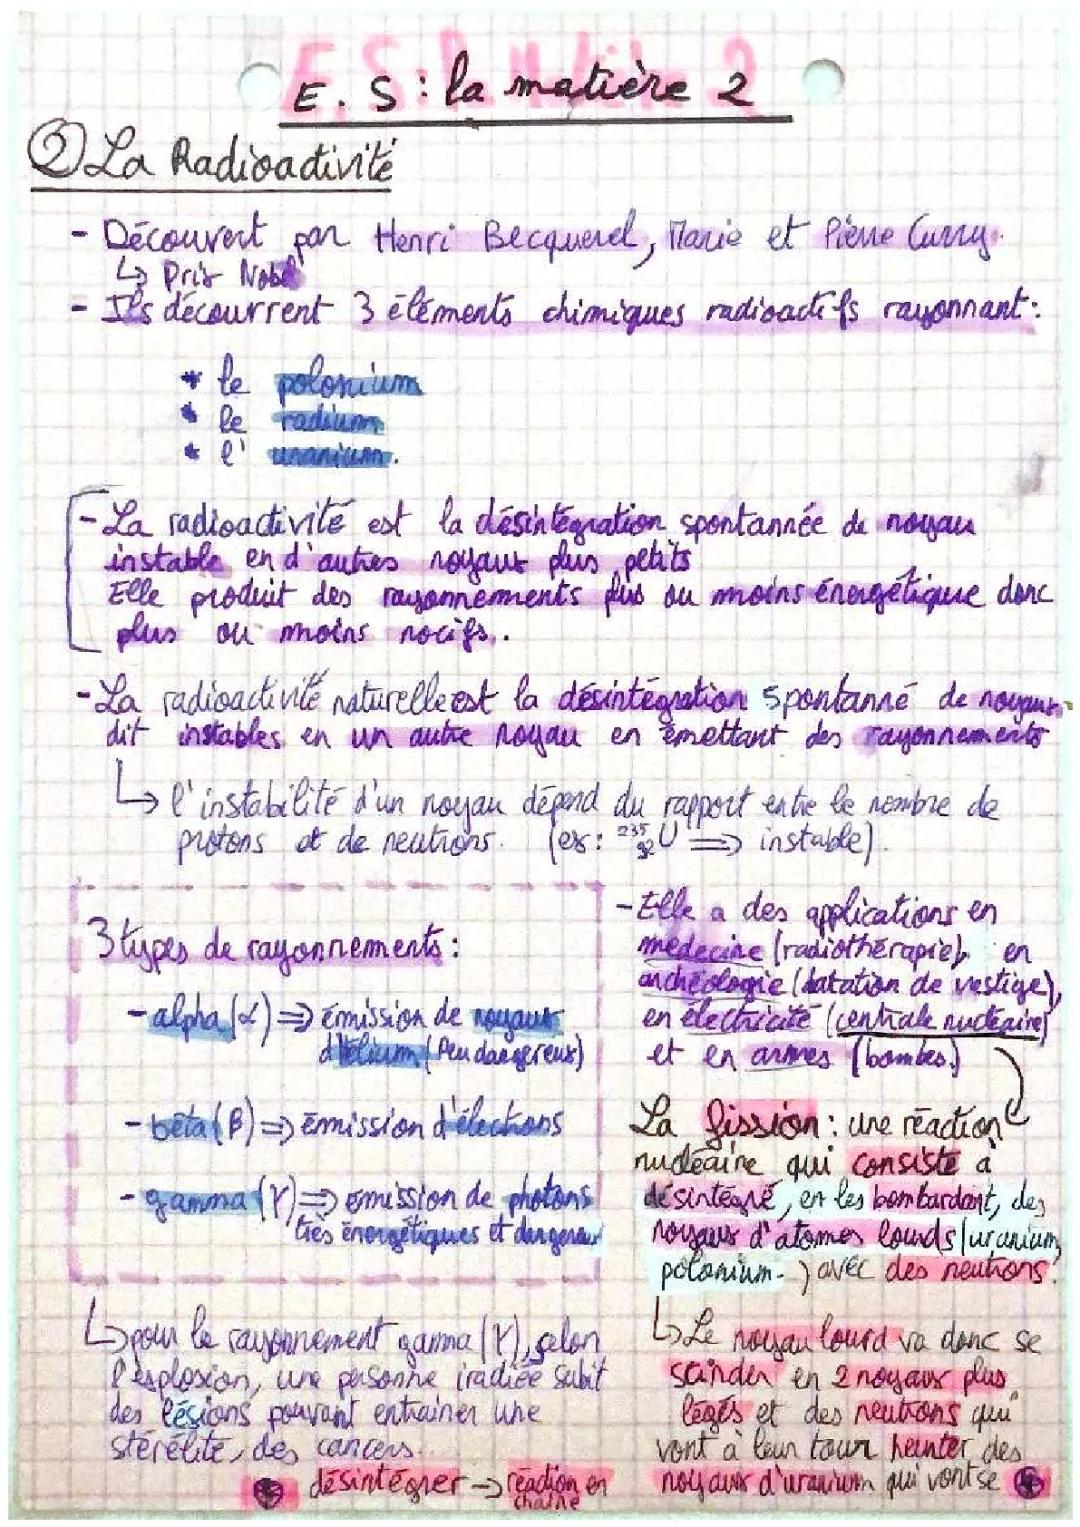 E.S: la matière 2
② La Radioactivité
- Découvert par Henri Becquerel, Marie et Pierre Curry.
↳ Prix Nobel
- Ils découvrent 3 éléments chimiques radioactifs rayonnant:
* le polonium
* le radium
* l' uranium.
- La radioactivité est la désintégration spontannée de noyau
instable en d'autres noyaux plus petits
Elle produit des rayonnements plus ou moins énergétique donc
plus ou moins nocifs.
- La radioactivité naturelle est la désintégration spontanné de noyaux
dit instables en un autre noyau en émettant des rayonnements
↳ l'instabilité d'un noyau dépend du rapport entre le nombre de
protons et de neutrons. (ex: ²³⁵₉₂U ⇒ instable).
3 types de rayonnements:
- alpha (α) ⇒ émission de noyaux
d'hélium (Peu dangereux)
- bêta (β) ⇒ émission d'élections
- gamma (γ) ⇒ émission de photons
très énergétiques et dangereux
↳ pour le rayonnement gamma (γ), selon
l'explosion, une personne iradiée subit
des lésions pouvant entrainer une
stérélité, des cancers...
- Elle a des applications en
médecine (radiothérapie), en
archéologie (datation de vestige),
en électricité (centrale nucléaire)
et en armes (bombes.)
La fission: une réaction
nucléaire qui consiste à
désintégré, en les bombardant, des
noyaux d'atomes lourds (uranium,
polonium..) avec des neutrons.
↳ Le noyau lourd va donc se
scinder en 2 noyaux plus
légés et des neutrons qui
vont à leur tour heurter des
noyaux d'uranium qui vont se
désintégrer → réaction en
chaîne